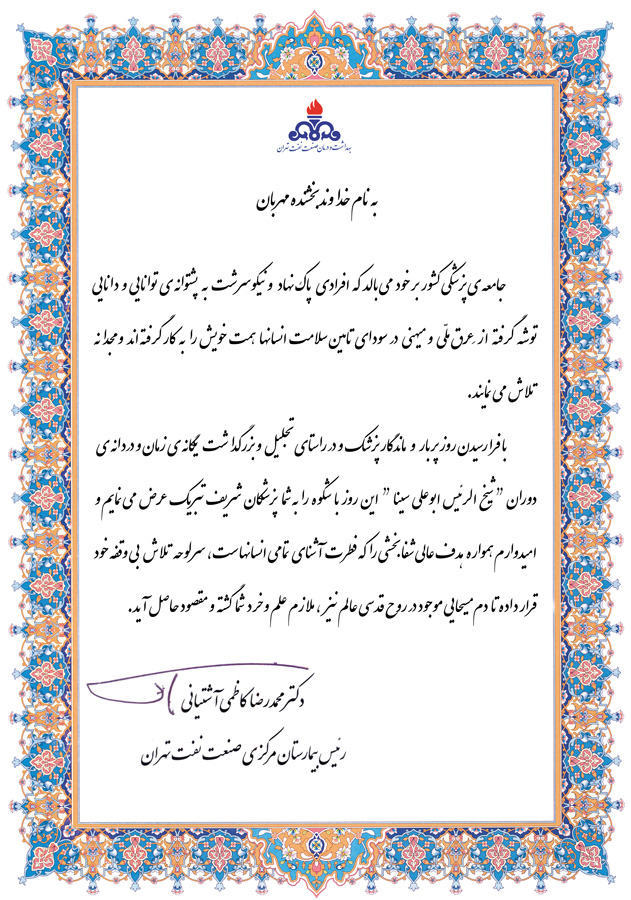 بهداشت و درمان صنعت نفت تهران
به نام خداوند بخشنده مهربان
جامعه ی پزشکی کشور بر خود می بالد که افرادی پاک نهاد و نیکو سرشت به پشتوانه ی توانایی و دانایی
توشه گرفته از عِرق ملّی و میهنی در سودای تامین سلامت انسانها همت خویش را به کار گرفته اند و مجدانه
تلاش می نمایند.
با فرا رسیدن روز پربار و ماندگار پزشک و در راستای تجلیل و بزرگداشت یگانه ی زمان و دردانه ی
دوران "شیخ الرئیس ابوعلی سینا" این روز باشکوه را به شما پزشکان شریف تبریک عرض می نمایم و
امیدوارم همواره هدف عالی شفابخشی را که فطرت آشنای تمامی انسانهاست، سرلوحه تلاش بی وقفه خود
قرار داده تا دم مسیحایی موجود در روح قدسی عالم نیز، ملازم علم و خرد شما گشته و مقصود حاصل آید.
دکتر محمدرضا کاظمی آشتیانی
رئیس بیمارستان مرکزی صنعت نفت تهران